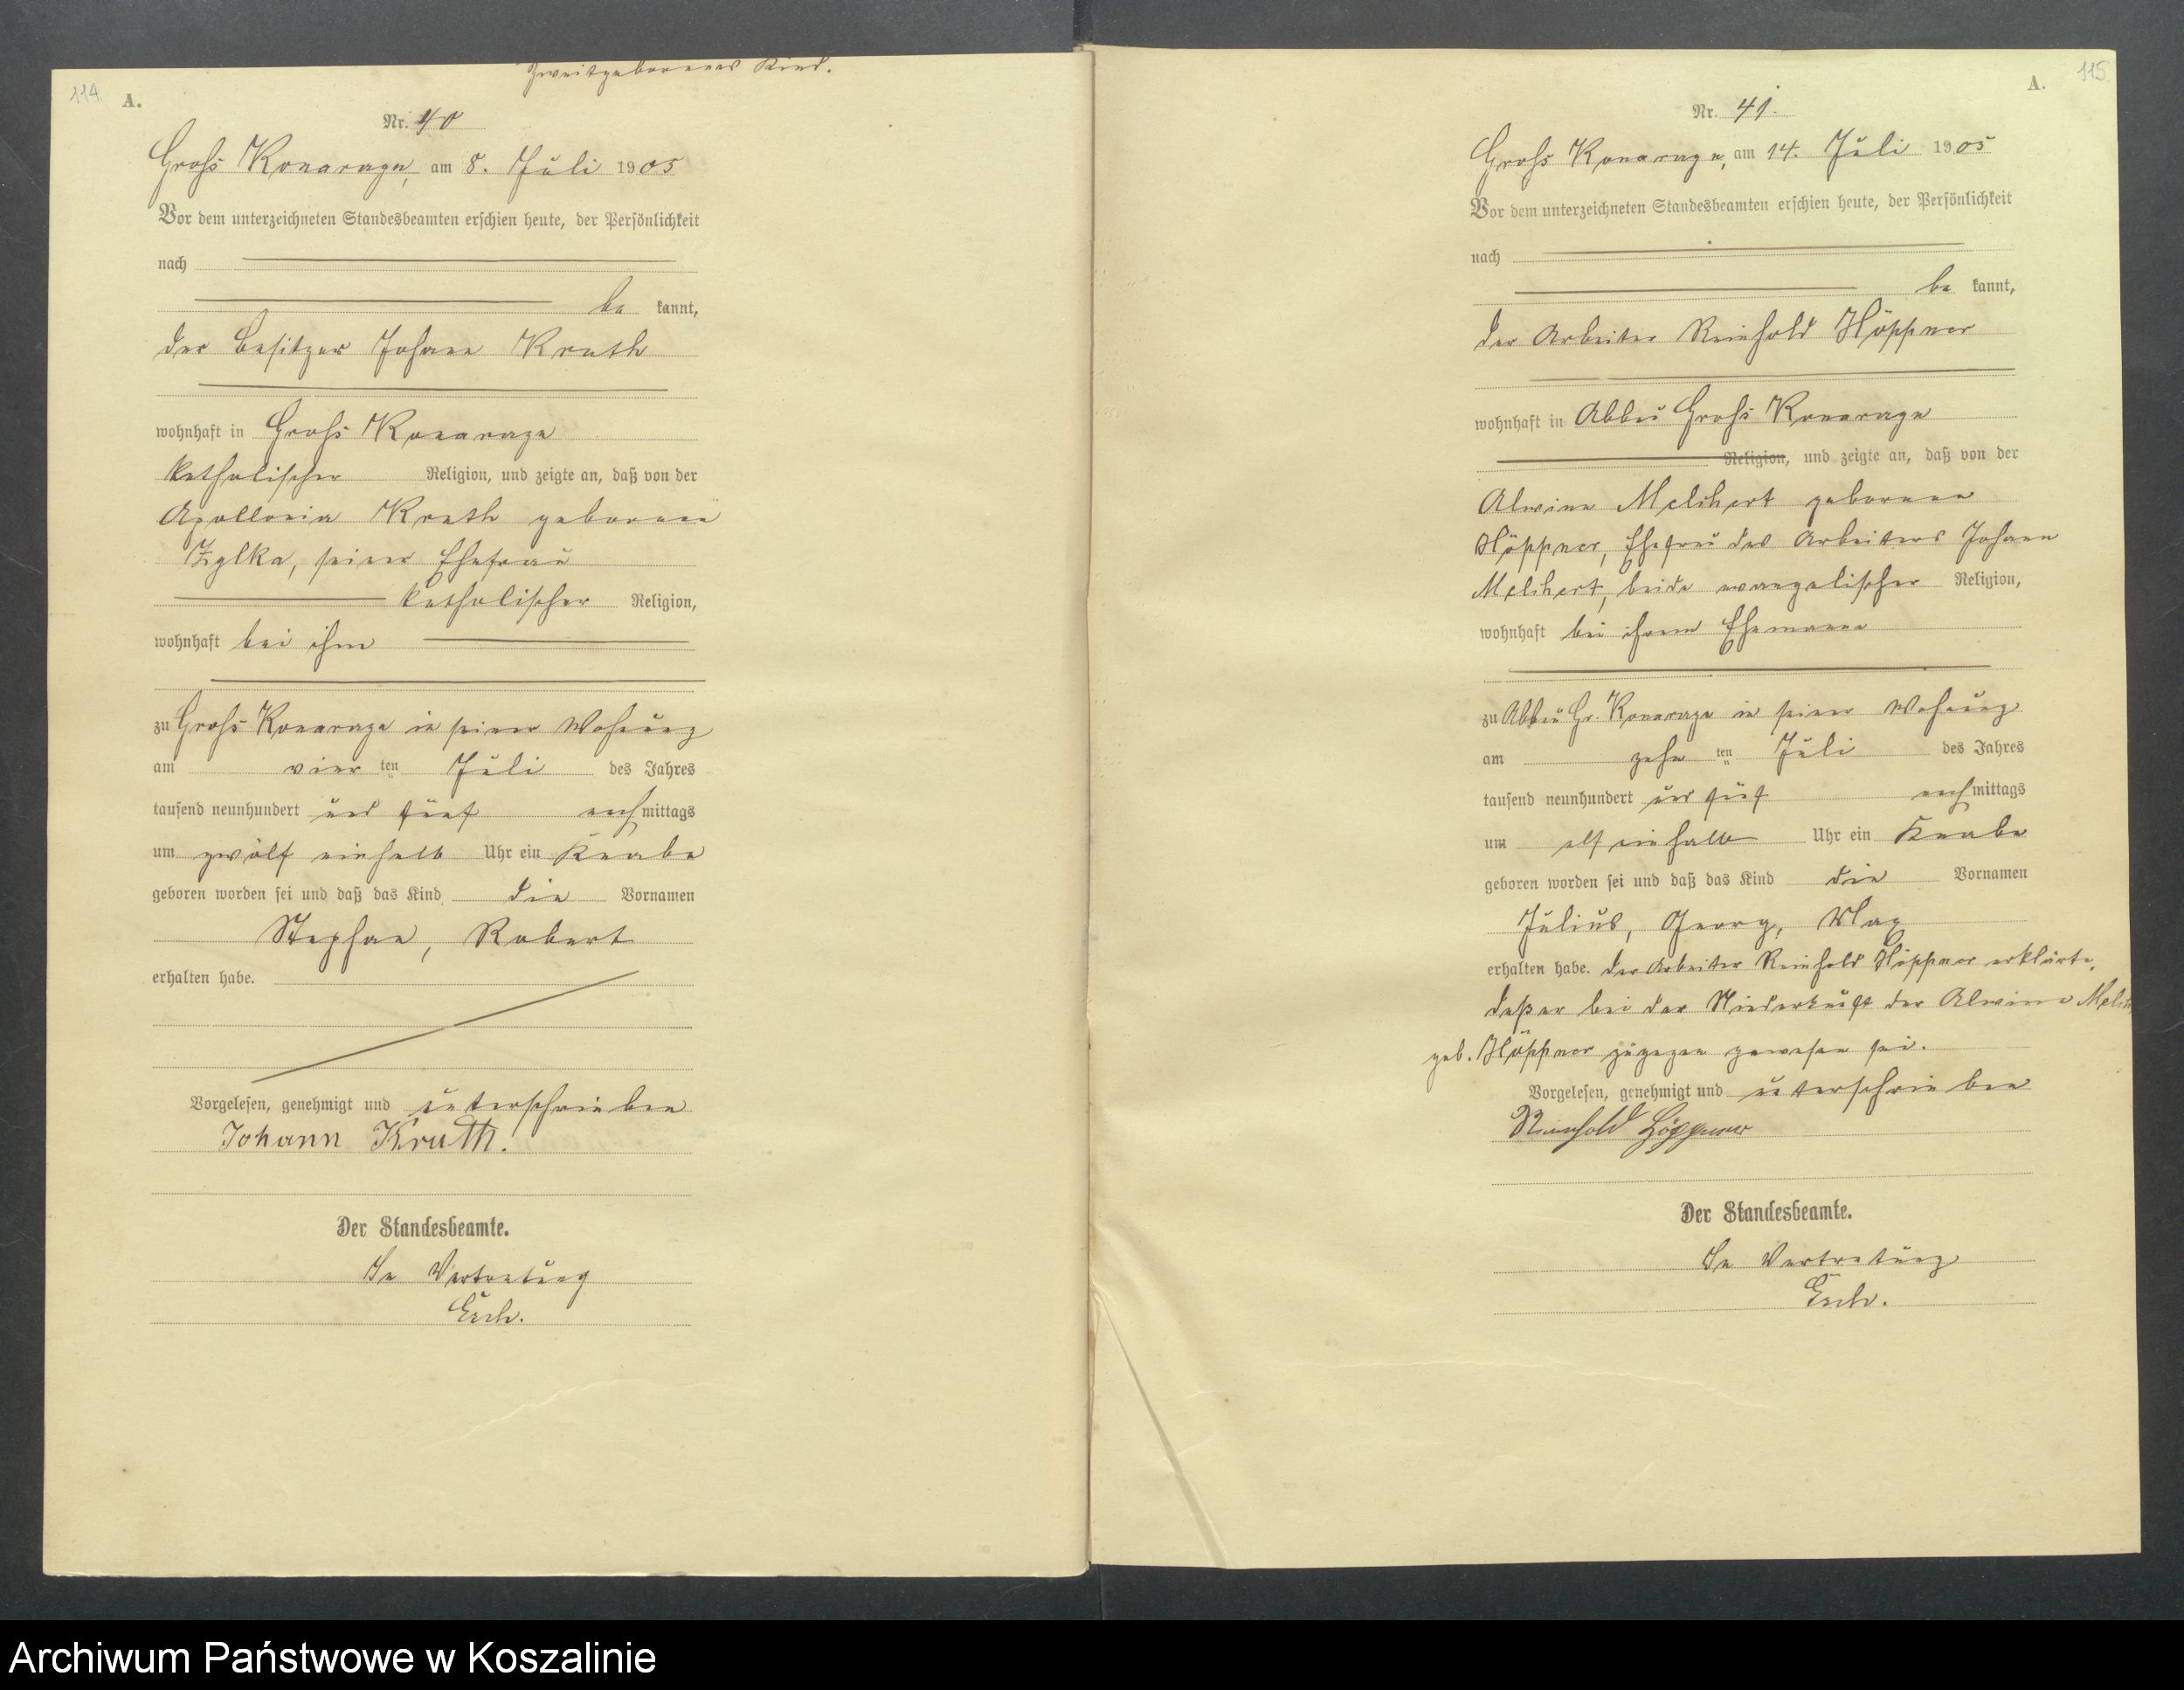 114
A.
Zweitgeborenes Kind.
Nr. 40
Groß Konarzyn, am 8. Juli 1905
Vor dem unterzeichneten Standesbeamten erschien heute, der Persönlichkeit
nach
be kannt,
der Besitzer Johann Kruth
wohnhaft in Groß Konarzyn
katholischer Religion, und zeigte an, daß von der
Apollonia Kruth geborenen
Zylka, seiner Ehefrau
katholischer Religion,
wohnhaft bei ihm
zu Groß Konarzyn in seiner Wohnung
am vier ten Juli des Jahres
tausend neunhundert und fünf nach mittags
um zwölf einhalb Uhr ein Knabe
geboren worden sei und daß das Kind die Vornamen
Stephan, Robert
erhalten habe.
Vorgelesen, genehmigt und unterschrieben
Johann Kruth.
Der Standesbeamte.
In Vertretung
115
A.
Nr. 41.
Groß Konarzyn, am 14. Juli 1905
Vor dem unterzeichneten Standesbeamten erschien heute, der Persönlichkeit
nach
be kannt,
der Arbeiter Reinhold Höppner
wohnhaft in Abbau Groß Konarzyn
Religion, und zeigte an, daß von der
Alwine Melchert geborenen
Höppner, Ehefrau des Arbeiters Johann
Melchert, beide evangelischer Religion,
wohnhaft bei ihrem Ehemanne
zu Abbau Gr. Konarzyn in seiner Wohnung
am zehn ten Juli des Jahres
tausend neunhundert und fünf nach mittags
um elf einhalb Uhr ein Knabe
geboren worden sei und daß das Kind die Vornamen
Julius, Georg, Max
erhalten habe. Der Arbeiter Reinhold Höppner erklärte,
daß er bei der Niederkunft der Alwine
geb. Höppner zugegen gewesen sei.
Vorgelesen, genehmigt und unterschrieben
Reinhold Höppner
Der Standesbeamte.
In Vertretung
Archiwum Państwowe w Koszalinie